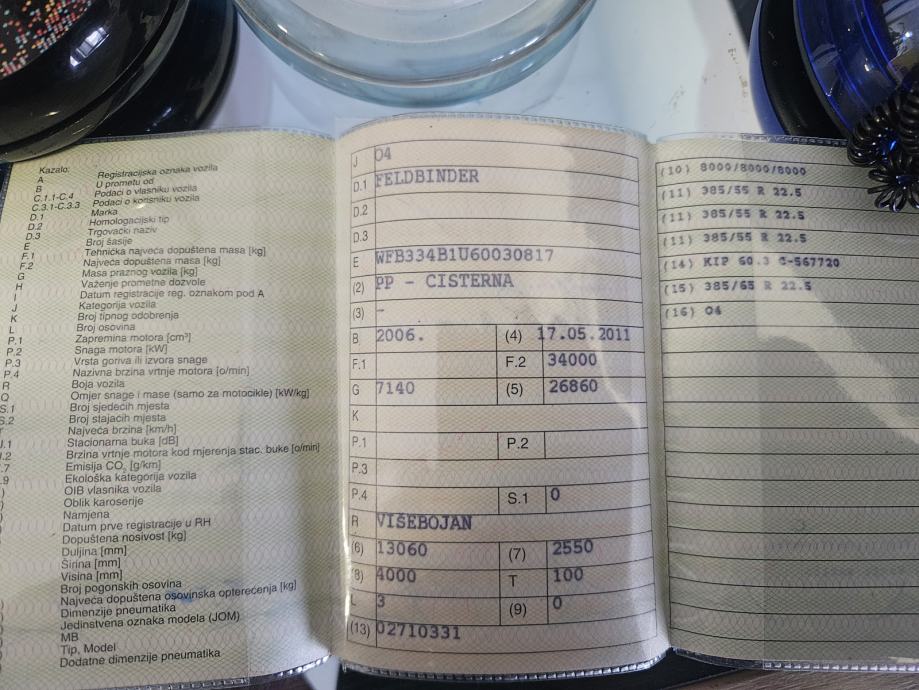 Kazalo:
A Registracijska oznaka vozila
B U prometu od
C.1.1-C.4 Podaci o vlasniku vozila
C.3.1-C.3.3 Podaci o korisniku vozila
D.1 Marka
D.2 Homologacijski tip
D.3 Trgovački naziv
E Broj šasije
F.1 Tehnička najveća dopuštena masa [kg]
F.2 Najveća dopuštena masa [kg]
G Masa praznog vozila [kg]
H Važenje prometne dozvole
I Datum registracije reg. oznakom pod A
J Kategorija vozila
K Broj tipnog odobrenja
L Broj osovina
P.1 Zapremina motora [cm³]
P.2 Snaga motora [kW]
P.3 Vrsta goriva ili izvora snage
P.4 Nazivna brzina vrtnje motora [o/min]
R Boja vozila
Q Omjer snage i mase (samo za motocikle) [kW/kg]
S.1 Broj sjedećih mjesta
S.2 Broj stajaćih mjesta
Najveća brzina [km/h]
.1 Stacionarna buka [dB]
.2 Brzina vrtnje motora kod mjerenja stac. buke [o/min]
.7 Emisija CO₂ [g/km]
.9 Ekološka kategorija vozila
OIB vlasnika vozila
Oblik karoserije
Namjena
Datum prve registracije u RH
Dopuštena nosivost [kg]
Duljina [mm]
Širina [mm]
Visina [mm]
Broj pogonskih osovina
Najveća dopuštena osovinska opterećenja [kg]
Dimenzije pneumatika
Jedinstvena oznaka modela (JOM)
MB
Tip, Model
Dodatne dimenzije pneumatika
J O4
D.1 FELDBINDER
D.2
D.3
E WFB334B1U60030817
(2) PP - CISTERNA
(3) -
B 2006. (4) 17.05.2011
F.1 F.2 34000
G 7140 (5) 26860
K
P.1 P.2
P.3
P.4 S.1 0
R VIŠEBOJAN
(6) 13060 (7) 2550
(8) 4000 T 100
L 3 (9) 0
(13) 02710331
(10) 8000/8000/8000
(11) 385/55 R 22.5
(11) 385/55 R 22.5
(11) 385/55 R 22.5
(14) KIP 60.3 C-567720
(15) 385/65 R 22.5
(16) O4